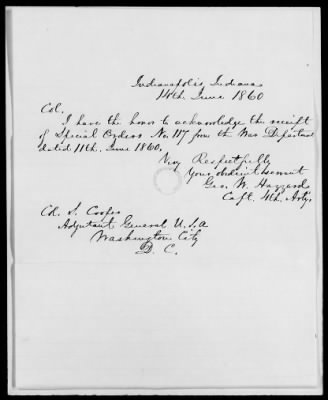 Indianapolis, Indiana
14th. June 1860
Col.
I have the honor to acknowledge the receipt
of Special Orders No. 117 from the War Department
dated 11th. June 1860.
Very Respectfully
Your obedient servant
Geo. W. Hazzard
Capt. 4th. Arty.
Col. S. Cooper
Adjutant General U.S.A
Washington City
D. C.